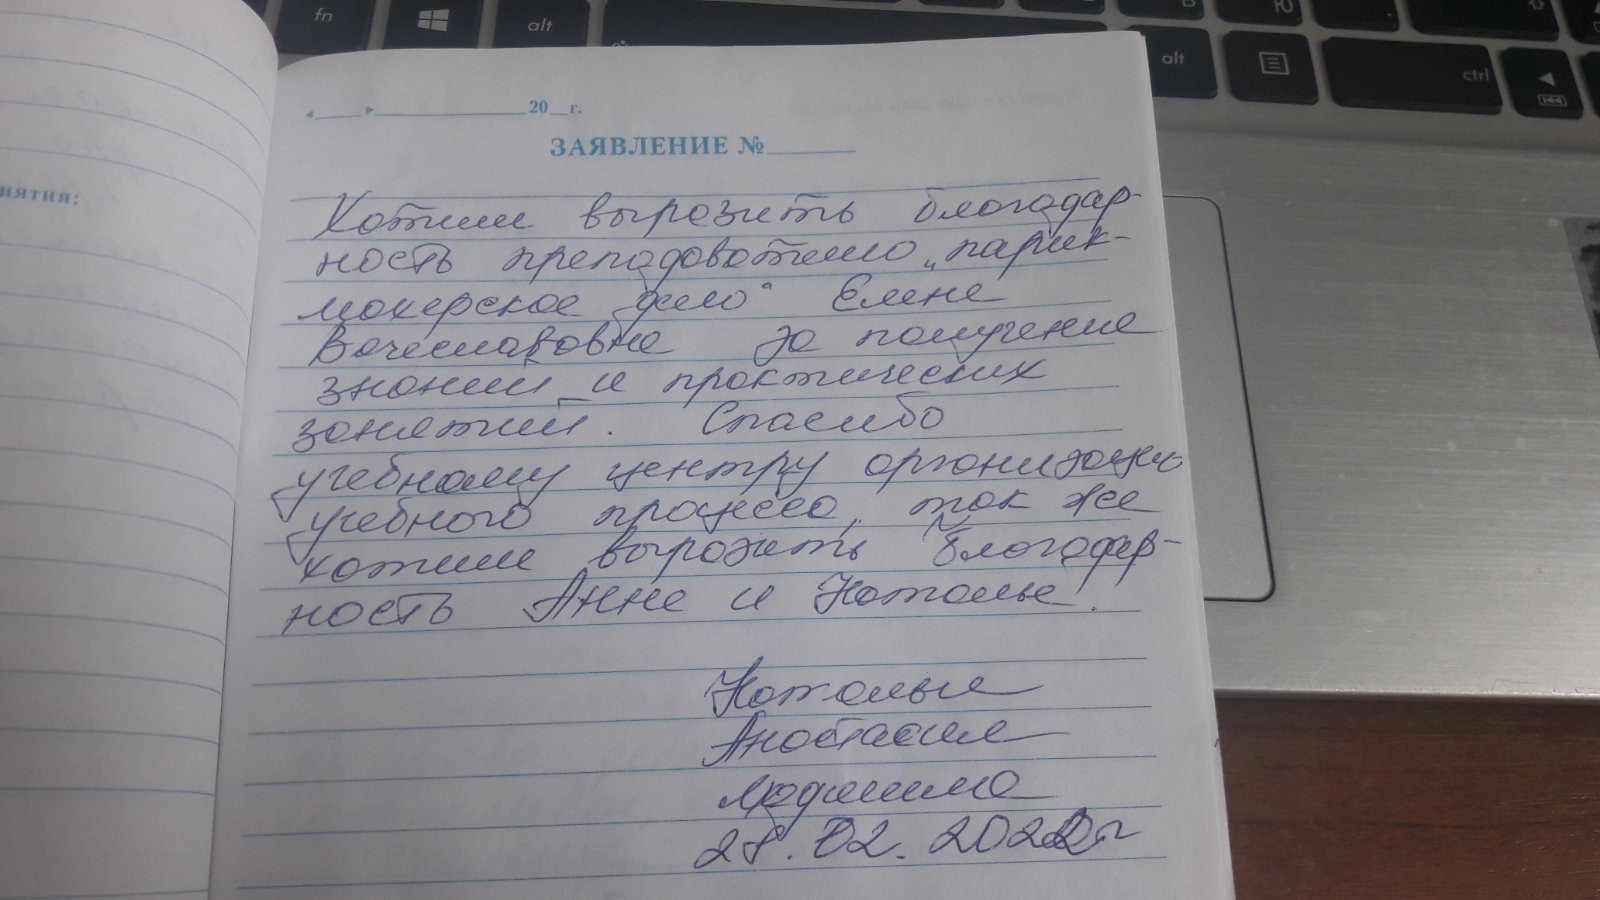 fn
alt
alt
ctrl
Ю
нятия:
« » 20 г.
ЗАЯВЛЕНИЕ №
Хотим выразить благодар-
ность преподователю „парик-
махерское дело" Елене
Вячеславовне за получение
знаний и практических
занятий. Спасибо
учебному центру организацию
учебного процесса, так же
хотим выразить благодар-
ность Анне и Наталье!
Наталья
Анастасия
Людмила
28.02.2022г